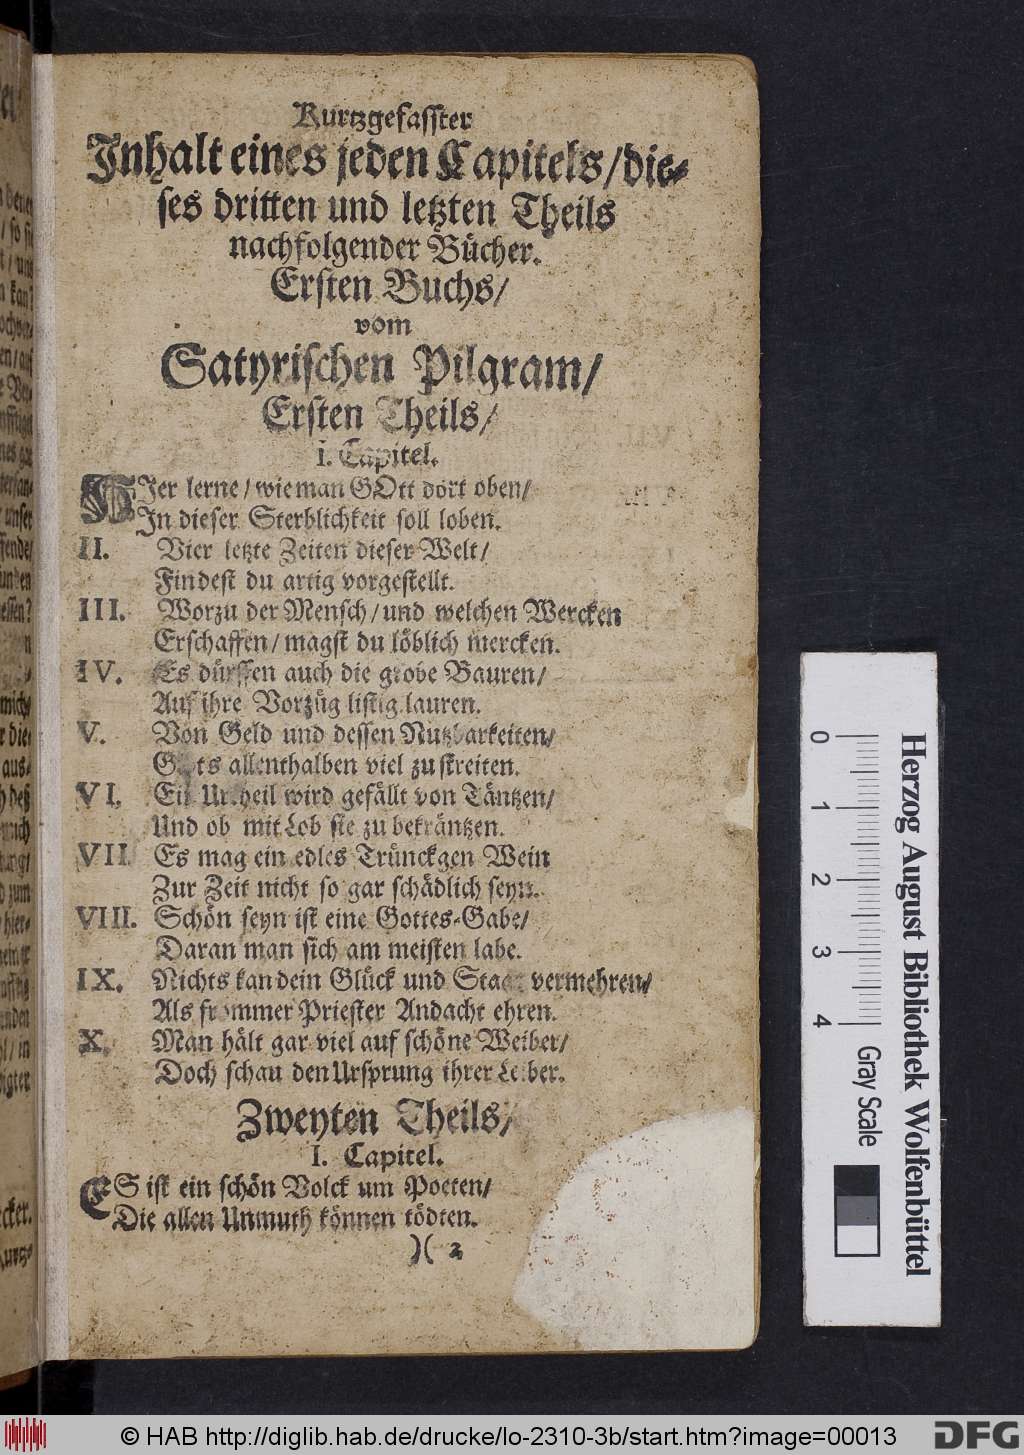 Kurtzgefasster
Inhalt eines jeden Capitels/die-
ses dritten und letzten Theils
nachfolgender Bücher.
Ersten Buchs/
vom
Satyrischen Pilgram/
Ersten Theils/
i. Capitel.
HIer lerne/wie man GOtt dort oben/
In dieser Sterblichkeit soll loben.
II. Vier letzte Zeiten dieser Welt/
Findest du artig vorgestellt.
III. Worzu der Mensch/und welchen Wercken
Erschaffen/magst du löblich mercken.
IV. Es dürffen auch die grobe Bauren/
Auf ihre Vorzüg listig lauren.
V. Von Geld und dessen Nutzbarkeiten/
Gibts allenthalben viel zu streiten.
VI. Ein Urtheil wird gefällt von Täntzen/
Und ob mit Lob sie zu bekräntzen.
VII. Es mag ein edles Trünckgen Wein
Zur Zeit nicht so gar schädlich seyn.
VIII. Schön seyn ist eine Gottes-Gabe/
Daran man sich am meisten labe.
IX. Nichts kan dein Glück und Staat vermehren/
Als frommer Priester Andacht ehren.
X. Man hält gar viel auf schöne Weiber/
Doch schau den Ursprung ihrer Leiber.
Zweyten Theils/
I. Capitel.
ES ist ein schön Volck um Poeten/
Die allen Unmuth können tödten.
)( 2
0 1 2 3 4
Herzog August Bibliothek Wolfenbüttel
Gray Scale
© HAB http://diglib.hab.de/drucke/lo-2310-3b/start.htm?image=00013
DFG